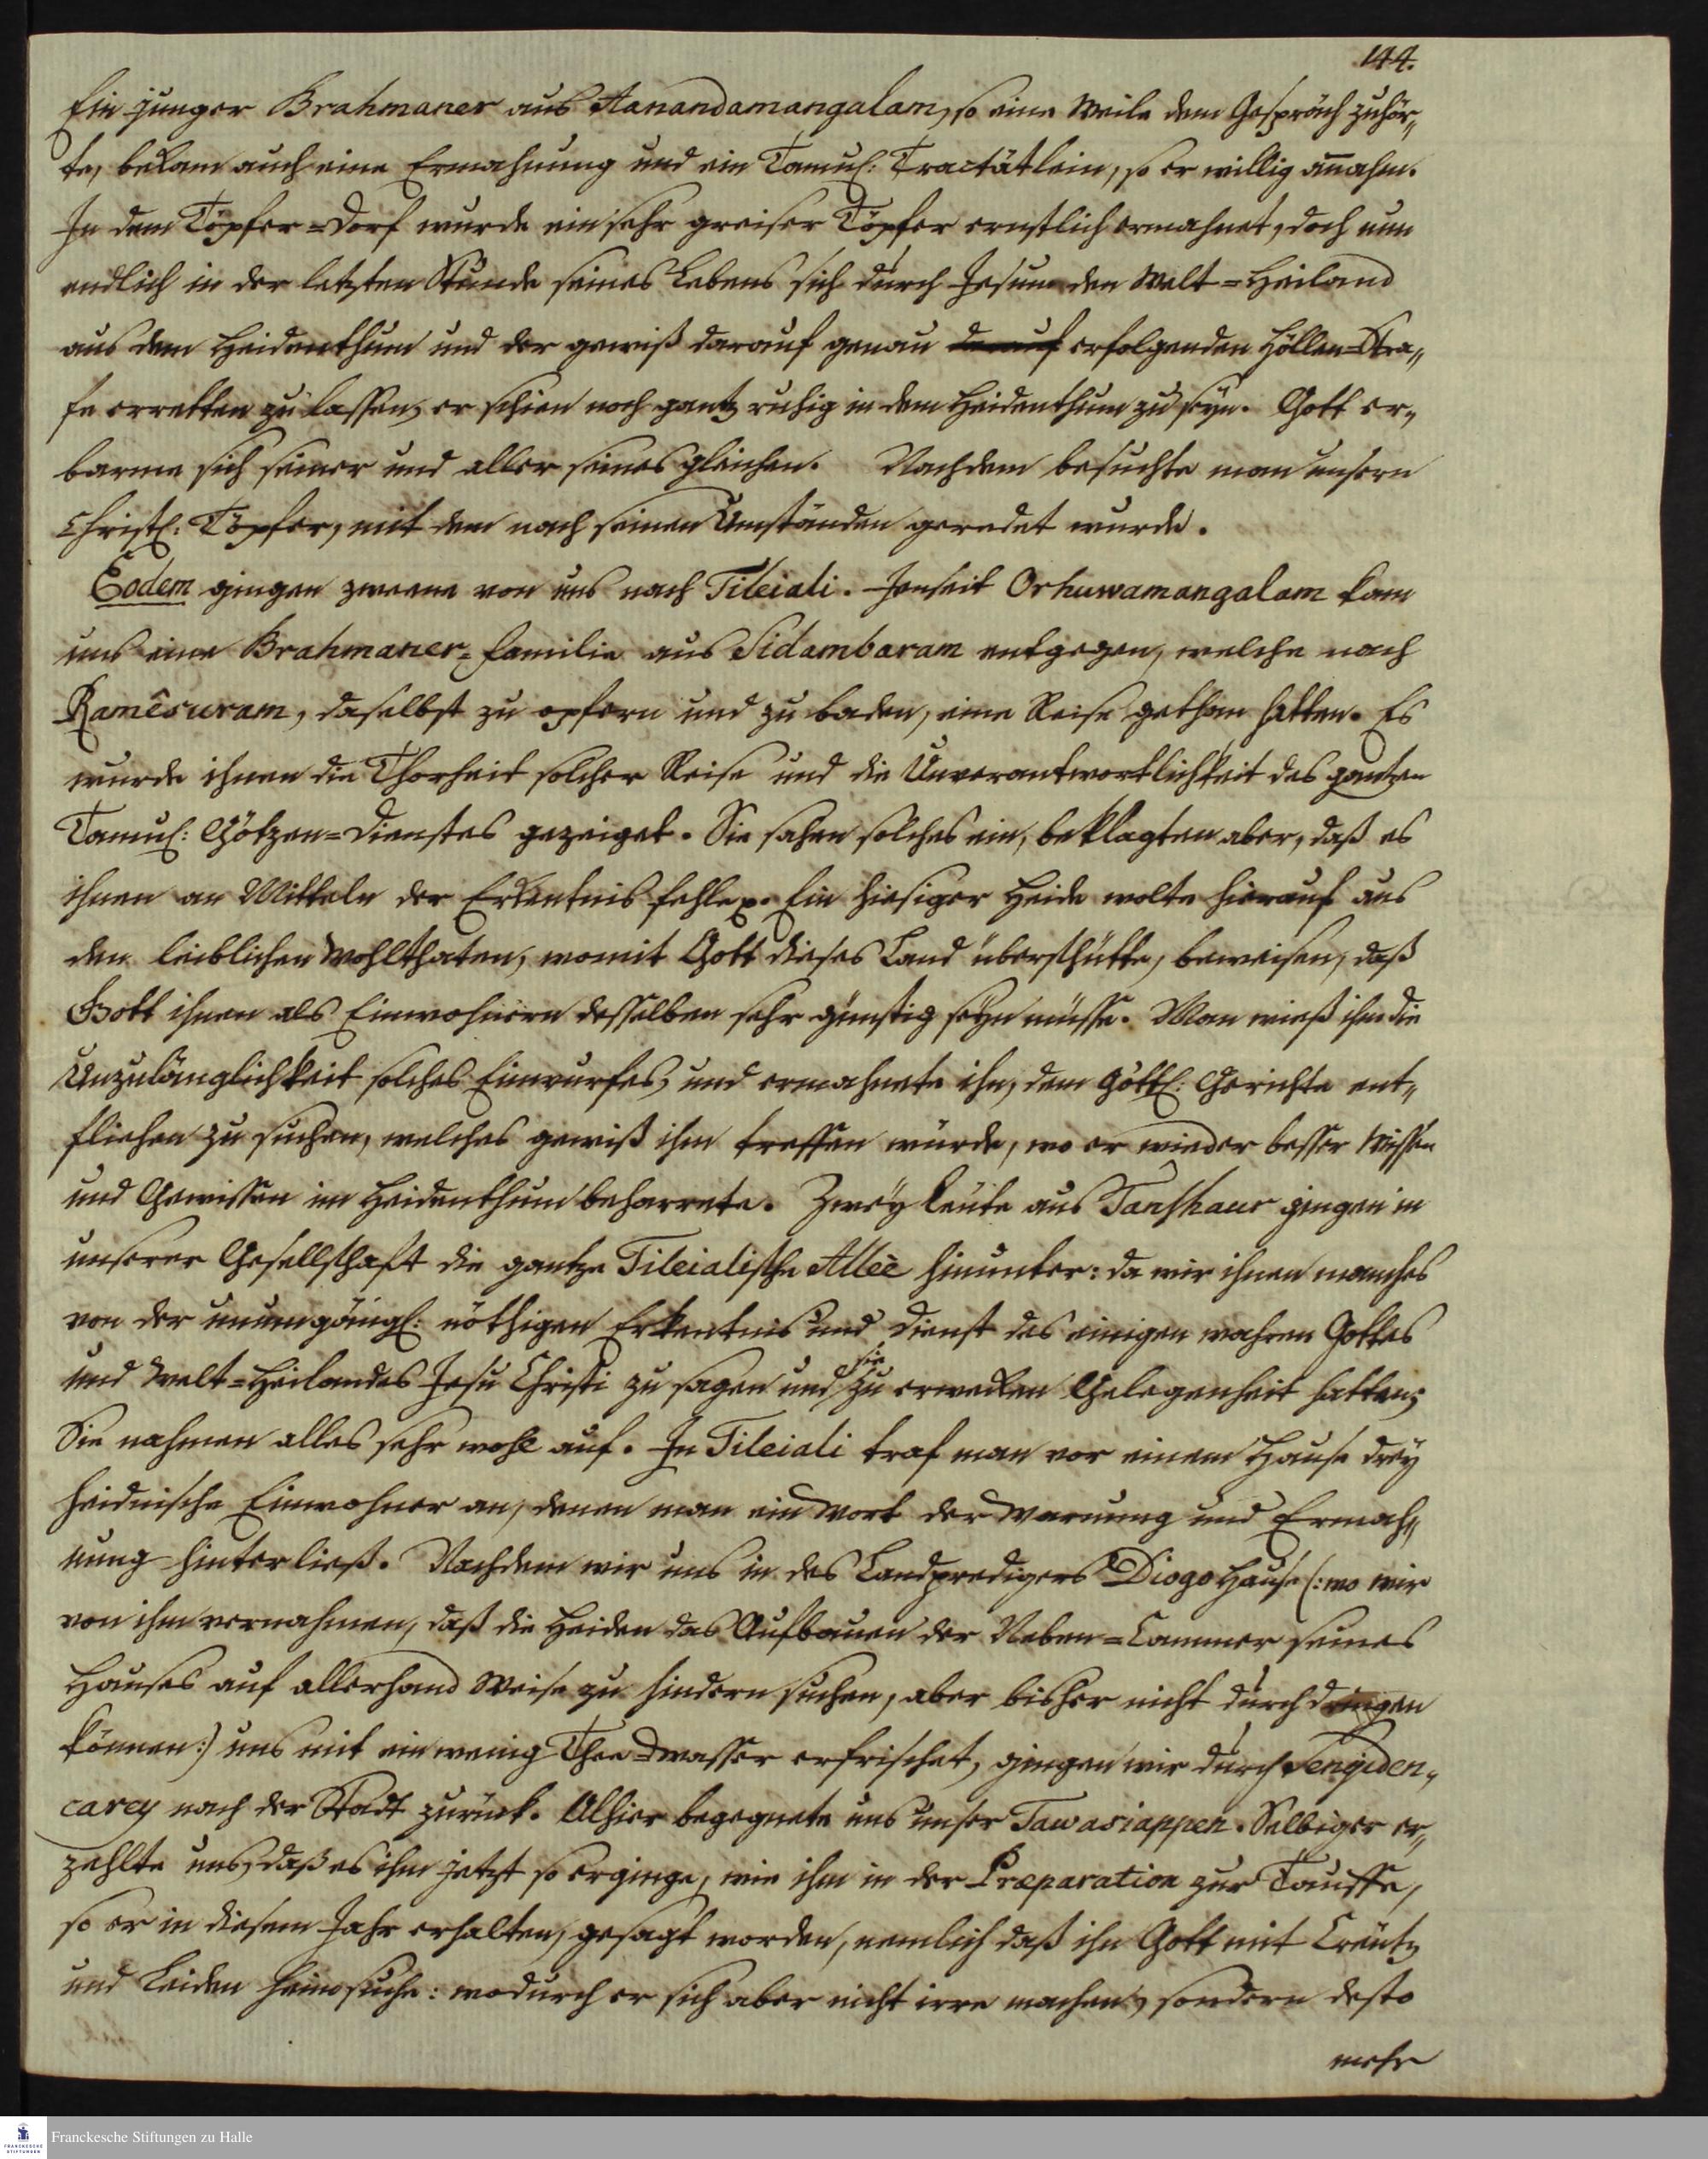 144.
Ein junger Brahmaner aus Aanandamangalam, so eine Weile dem Gespräch zuhör„
te, bekam auch eine Ermahnung und ein Tamul: Tractätlein, so er willig an̄ahm.
In dem Töpfer=Dorf wurde ein sehr greiser Töpfer ernstlich ermahnet, doch nun
endlich in der letzten Stunde seines Lebens sich durch Jesum den Welt=Heiland
aus dem Heidenthum und der gewiß darauf genau darauf erfolgenden Höllen=Stra„
fe erretten zu lassen, er schien noch gantz ruhig in dem Heidenthum zu seyn. Gott er„
barme sich seiner und aller seines gleichen. Nachdem besuchte man unsern
Christl: Töpfer, mit dem nach seinen Umständen geredet wurde.
Eodem gingen zweene von uns nach Tileiali. Jenseit Orhuwamangalam kam
uns eine Brahmaner=familie aus Sidambaram entgegen, welche nach
Ramêsuram, daselbst zu opfern und zu baden, eine Reise gethan hatten. Es
wurde ihnen die Thorheit solcher Reise und die Unverantwortlichkeit des gantzen
Tamul: Götzen=Dienstes gezeiget. Sie sahen solches ein, beklagten aber, daß es
ihnen an Mitteln der Erkentnis fehle p. Ein hiesiger Heide wolte hierauf aus
den leiblichen Wohlthaten, womit Gott dieses Land überschütte, beweisen, daß
Gott ihnen als Einwohnern desselben sehr günstig seyn müsse. Man wieß ihm die
Unzulänglichkeit solches Einwurfes, und ermahnete ihn, dem Göttl: Gerichte ent„
fliehen zu suchen, welches gewiß ihn treffen würde, wo er wieder besser Wissen
und Gewissen im Heidenthum beharrete. Zwey Leute aus Tanshaur gingen in
unserer Gesellschaft die gantze Tileialische Allèe hinunter: da wir ihnen manches
von der unumgängl: nöthigen Erkentnis und Dienst des einigen wahren Gottes
und Welt=Heilandes Jesu Christi zu sagen und sie zu erwecken Gelegenheit hatten;
Sie nahmen alles sehr wohl auf. In Tileiali traf man vor einem Hause drey
heidnische Einwohner an, denen man ein Wort der Warnung und Ermah„
nung hinterließ. Nachdem wir uns in des Landpredigers Diogo Hause (: wo wir
von ihm vernahmen, daß die Heiden das Aufbauen der Neben=Cammer seines
Hauses auf allerhand Weise zu hindern suchen, aber bisher nicht durchdringen
können :) uns mit ein wenig Thee=wasser erfrischet, gingen wir durch Sengiden„
carey nach der Stadt zurück. Alhier begegnete uns unser Tawasiappen. Selbiger er„
zehlte uns, daß es ihm jetzt so erginge, wie ihm in der Præparation zur Tauffe,
so er in diesem Jahr erhalten, gesagt worden, nemlich daß ihn Gott mit Creutz
und Leiden heimsuche: wodurch er sich aber nicht irre machen, sondern desto
mehr
Franckesche Stiftungen zu Halle